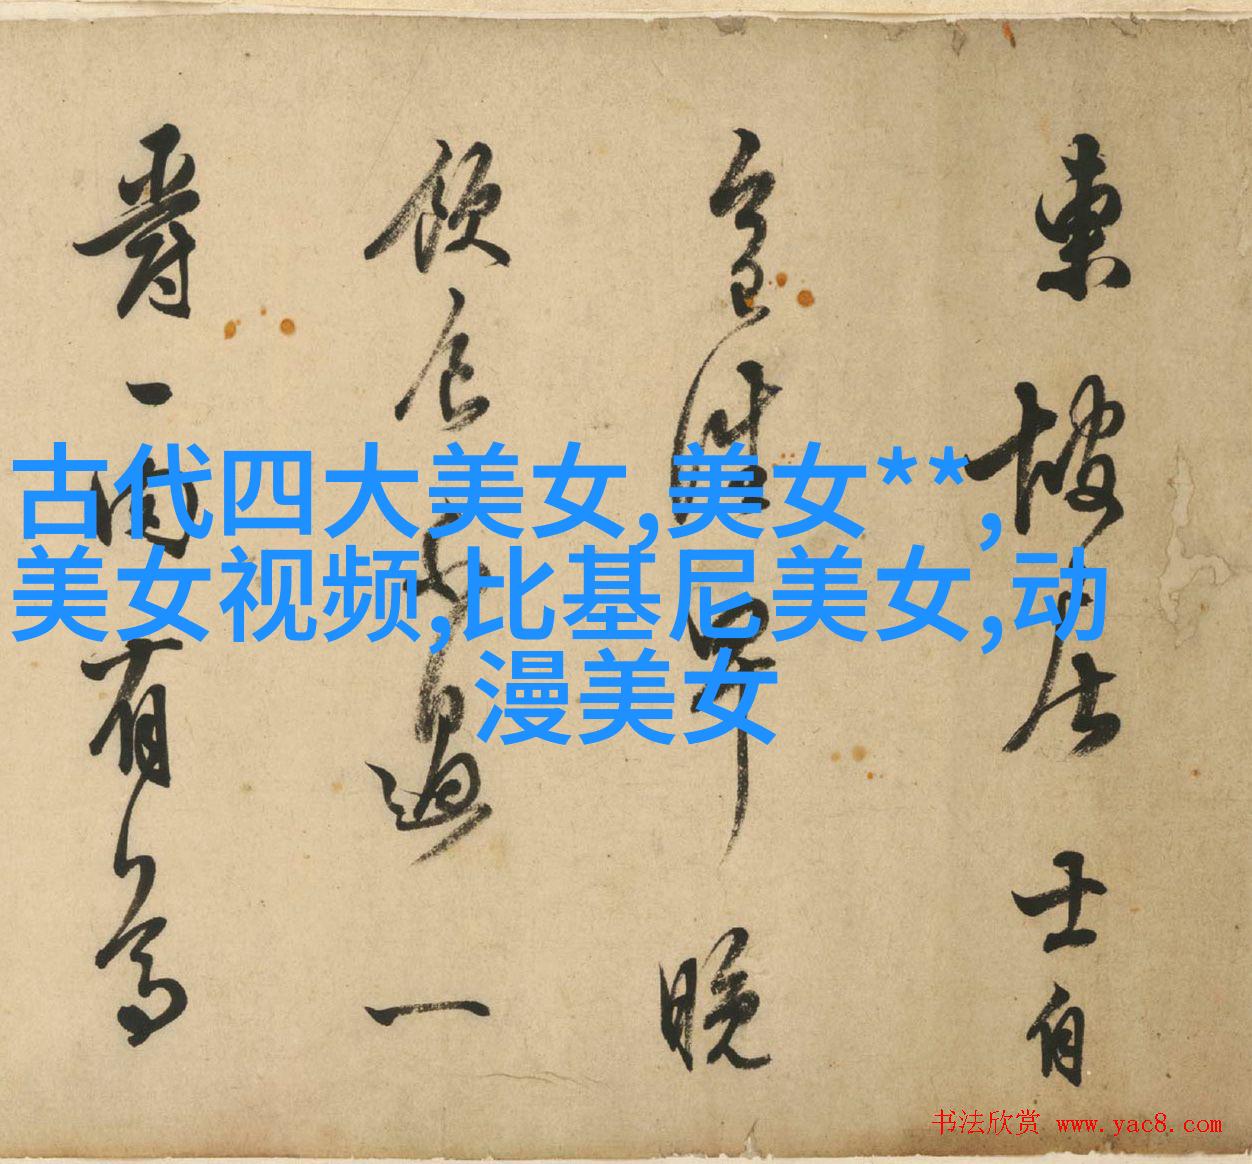 東坡居士自
今日早晚
飲食不過一
爵一肉有
古代四大美女,美女**,
美女视频,比基尼美女,动
漫美女
书法欣赏 www.yac8.com